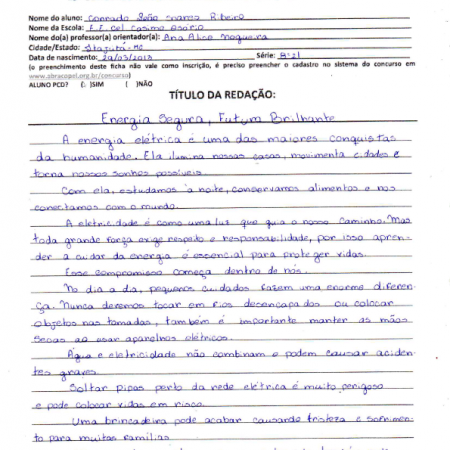 Nome do aluno: Conrado João Soares Ribeiro
Nome da Escola: E.E. Cel Casimo Osório
Nome do(a) professor(a) orientador(a): Ana Alice Nogueira
Cidade/Estado: Itajubá-MG
Data de nascimento: 20/03/2013 Série: 8º
(o preenchimento deste ficha não vale como inscrição, é preciso preencher o cadastro no sistema do concurso em
www.abracopel.org.br/concurso)
ALUNO PCD? ( )SIM ( )NÃO
TÍTULO DA REDAÇÃO:
Energia Segura, Futuro Brilhante
A energia elétrica é uma das maiores conquistas
da humanidade. Ela ilumina nossas casas, movimenta cidades e
torna nossos sonhos possíveis.
Com ela, estudamos à noite, conservamos alimentos e nos
conectamos com o mundo.
A eletricidade é como uma luz que guia o nosso caminho. Mas
toda grande força exige respeito e responsabilidade, por isso apren-
der a cuidar da energia é essencial para proteger vidas.
Esse compromisso começa dentro de nós.
No dia a dia, pequenos cuidados fazem uma enorme diferen-
ça. Nunca devemos tocar em fios desencapados ou colocar
objetos nas tomadas, também é importante manter as mãos
secas ao usar aparelhos elétricos.
Água e eletricidade não combinam e podem causar aciden-
tes graves.
Soltar pipas perto da rede elétrica é muito perigoso
e pode colocar vidas em risco.
Uma brincadeira pode acabar causando tristeza e sofrimen-
to para muitas famílias